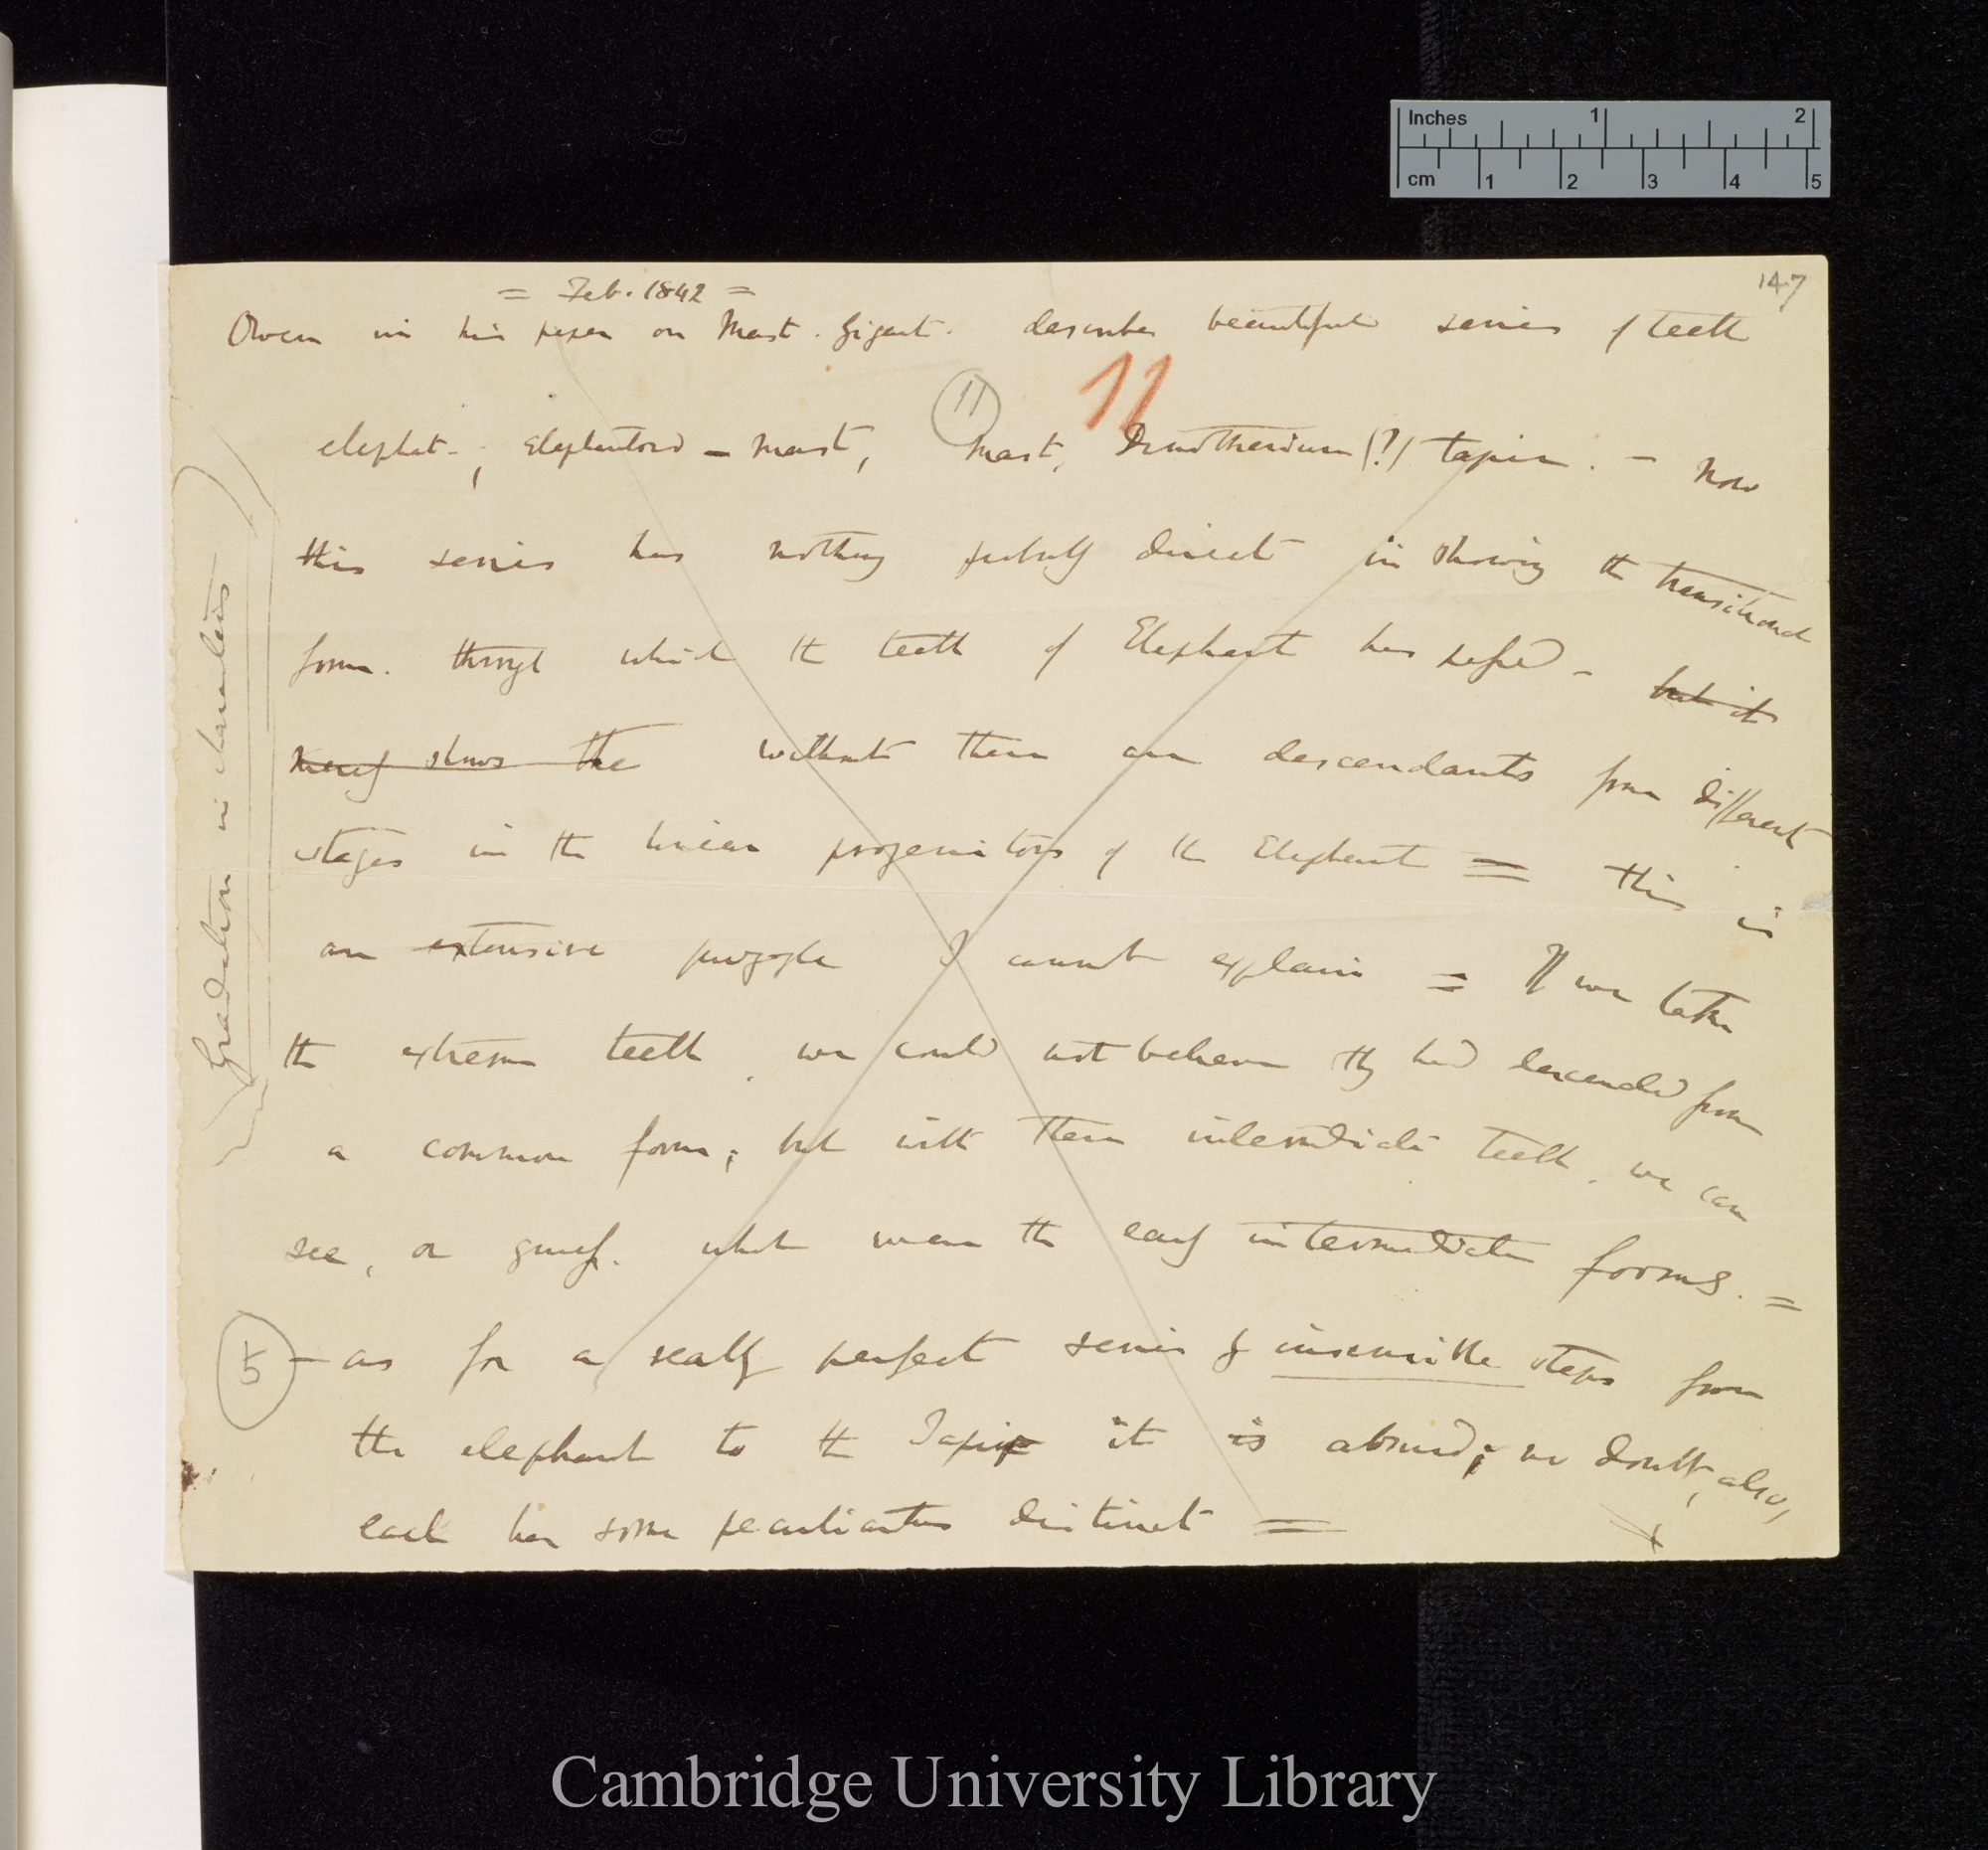 Inches 1 2
cm 1 2 3 4 5
147
= Feb. 1842 =
Owen in his paper on Mast. Gigant. describes beautiful series of teeth
11 11
elephat-, Elephantoid - mast, Mast, Dinotherium (?) tapir. - Now
this series has nothing probably direct in showing the transitional
form. through which the teeth of Elephant has passed - but it
merely shows the without them are descendants from different
stages in the linear progenitors of the Elephant = this is
an extensive puzzle I cannot explain = If we take
the extreme teeth, we could not believe they had descended from
a common form; but with them intermediate teeth, we can
see, or guess. what were the early intermediate forms. =
5 - as for a really perfect series of insensible steps from
the elephant to the Tapir it is absurd; no doubt, also,
each has some peculiarities distinct =
Gradation in characters
Cambridge University Library